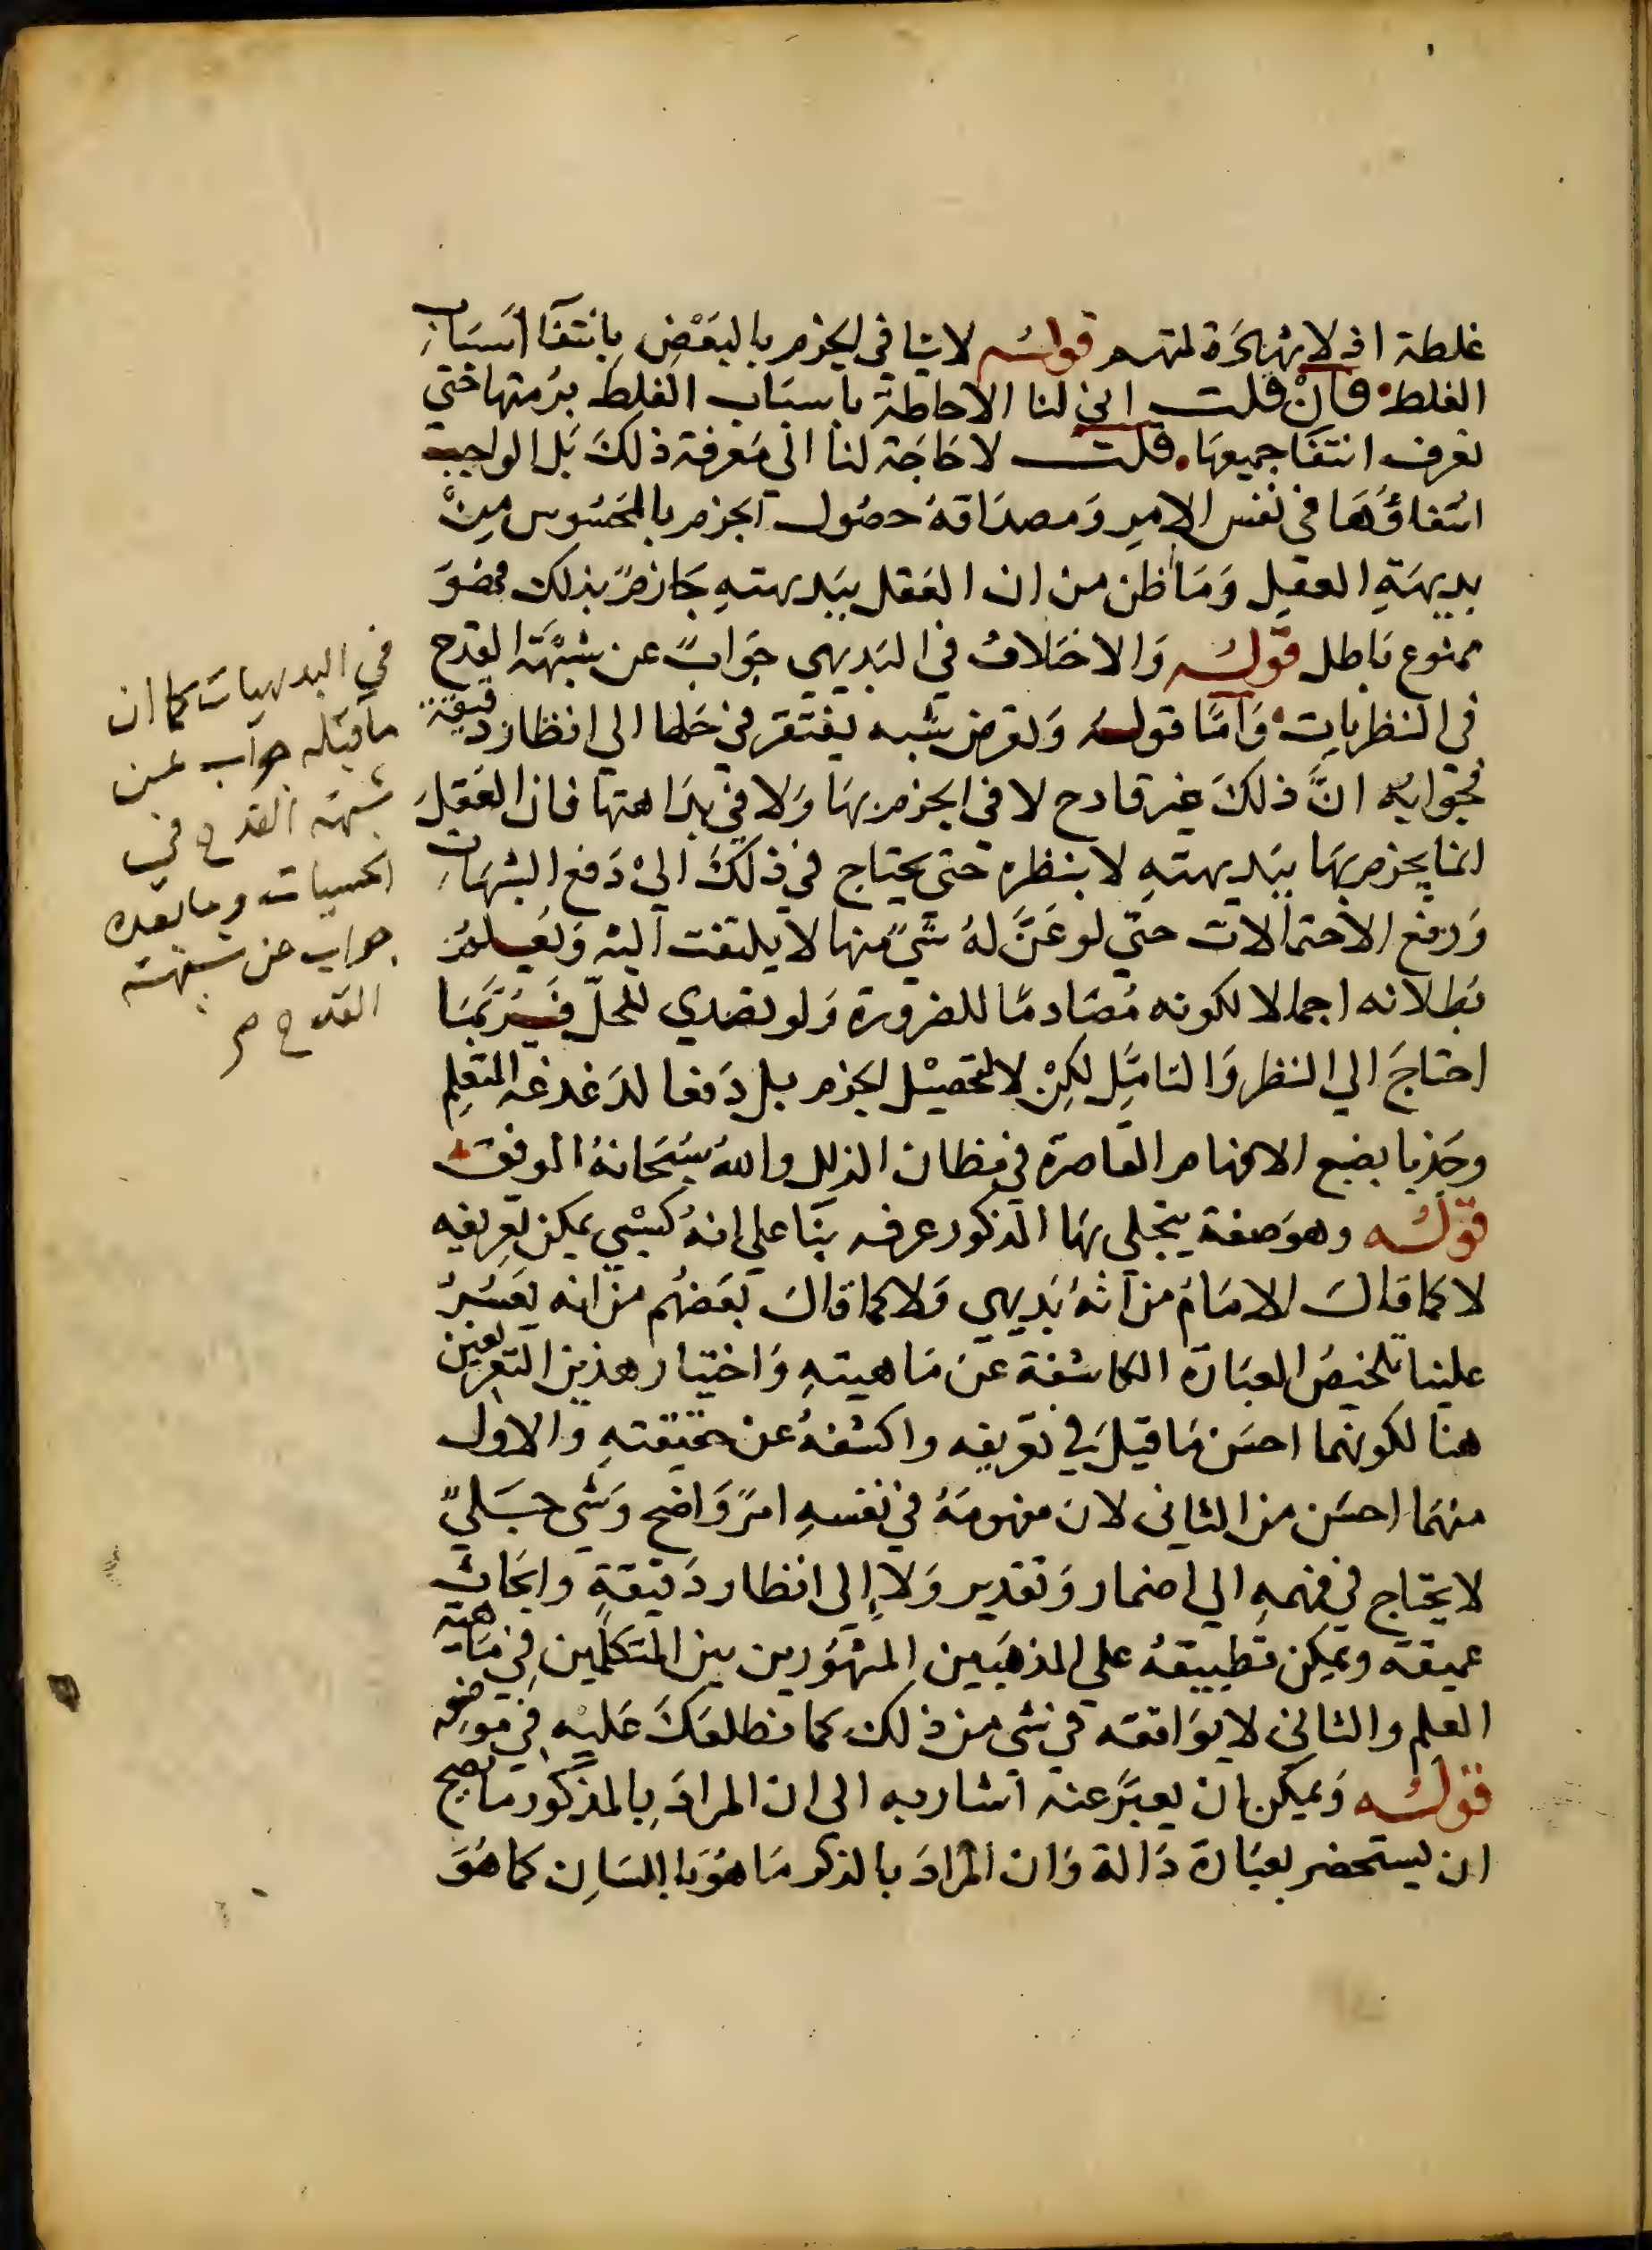 غلطة اذ لا شهرة لمتهم قوله لا ينافي الجزم بالبعض بانتفا اسباب
الغلط فان قلت انى لنا الاحاطة باسباب الغلط برمتها حتي
نعرف انتفا جميعها قلت لا حاجة لنا الي معرفة ذلك بل الواجب
انتفاؤها في نفس الامر ومصداقه حصول الجزم بالمحسوس من
بديهة العقل وما ظن من ان العقل ببديهته جازم بذلك فهو
ممنوع باطل قوله والاختلاف في البديهي جواب عن شبهة القدح
في النظريات واما قوله وتعرض شبه يفتقر في حلها الي انظار دقيقة
فجوابه ان ذلك غير قادح لا في الجزم بها ولا في بداهتها فان العقل
انما يجزم بها ببديهته لا بنظره حتي يحتاج في ذلك الي دفع الشبهات
ورفع الاحتمالات حتي لو عن له شي منها لا يلتفت اليه ويعلم
بطلانه اجمالا لكونه مصادما للضرورة ولو تصدي للحل فربما
احتاج الي النظر والتامل لكن لا لتحصيل الجزم بل دفعا لدغدغة المتعلم
وجذبا بضبع الافهام القاصرة في مظان الزلل والله سبحانه الموفق
قوله وهو صفة يتجلي بها المذكور عرفه بنا علي انه كسبي يمكن تعريفه
لا كما قال الامام من انه بديهي ولا كما قال بعضهم من انه يعسر
علينا تلخيص العبارة الكاشفة عن ماهيته واختيار هذين التعريفين
هنا لكونهما احسن ما قيل في تعريفه واكشفه عن حقيقته والاول
منهما احسن من الثاني لان مفهومه في نفسه امر واضح وشي جلي
لا يحتاج في فهمه الي اضمار وتقدير ولا الي انظار دقيقة وابحاث
عميقة ويمكن تطبيقه علي المذهبين المشهورين بين المتكلمين في ماهية
العلم والثاني لا يوافقه في شي من ذلك كما نطلعك عليه في موضعه
قوله ويمكن ان يعبر عنه اشار به الي ان المراد بالمذكور ما يصح
ان يستحضر بعبارة دالة وان المراد بالذكر ما هو باللسان كما هو
في البديهيات كما ان
ما قبله جواب عن
شبهة القدح في
الحسيات وما بعده
جواب عن شبهة
القدح صح